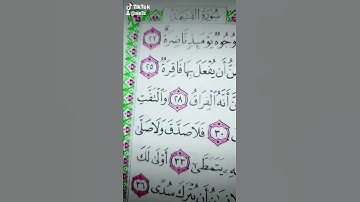 TikTok
سُورَةُ الْقِيَامَةِ
وُجُوهٌ يَوْمَئِذٍ نَاضِرَةٌ ٢٢
أَنْ يُفْعَلَ بِهَا فَاقِرَةٌ ٢٥
أَنَّهُ الْفِرَاقُ ٢٨ وَالْتَفَّتِ
٣٠ فَلَا صَدَّقَ وَلَا صَلَّىٰ
يَتَمَطَّىٰ ٣٣ أَوْلَىٰ لَكَ
أَنْ يُتْرَكَ سُدًى ٣٦